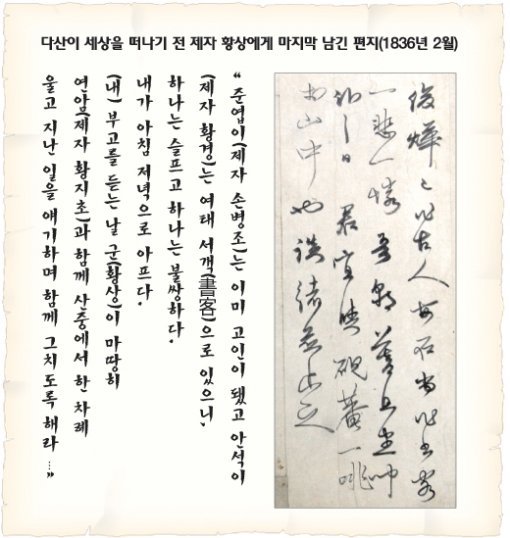 다산이 세상을 떠나기 전 제자 황상에게 마지막 남긴 편지(1836년 2월)
俊燁已作古人安石尚作書客
一悲一憐吾朝暮且
訃之日君宜與硯菴一哭
山中
“ 준엽이(제자 손병조)는 이미 고인이 됐고 안석이
(제자 황경)는 여태 서객(書客)으로 있으니,
하나는 슬프고 하나는 불쌍하다.
내가 아침 저녁으로 아프다.
(내) 부고를 듣는 날 군(황상)이 마땅히
연암(제자 황지초)과 함께 산중에서 한 차례
울고 지난 일을 얘기하며 함께 그치도록 해라 …”